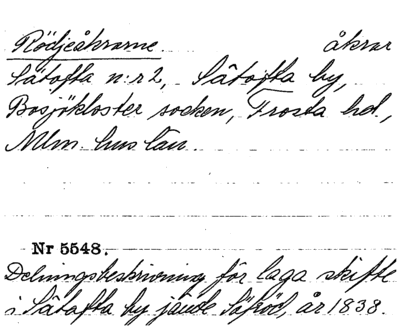 Rödjeåkrarne åkrar
Sätofta n:r 2, Sätofta by,
Bosjökloster socken, Frosta hd.,
Mlm. hus län
Nr 5548.
Delningsbeskrivning för laga skifte
i Sätofta by jämte år 1838.